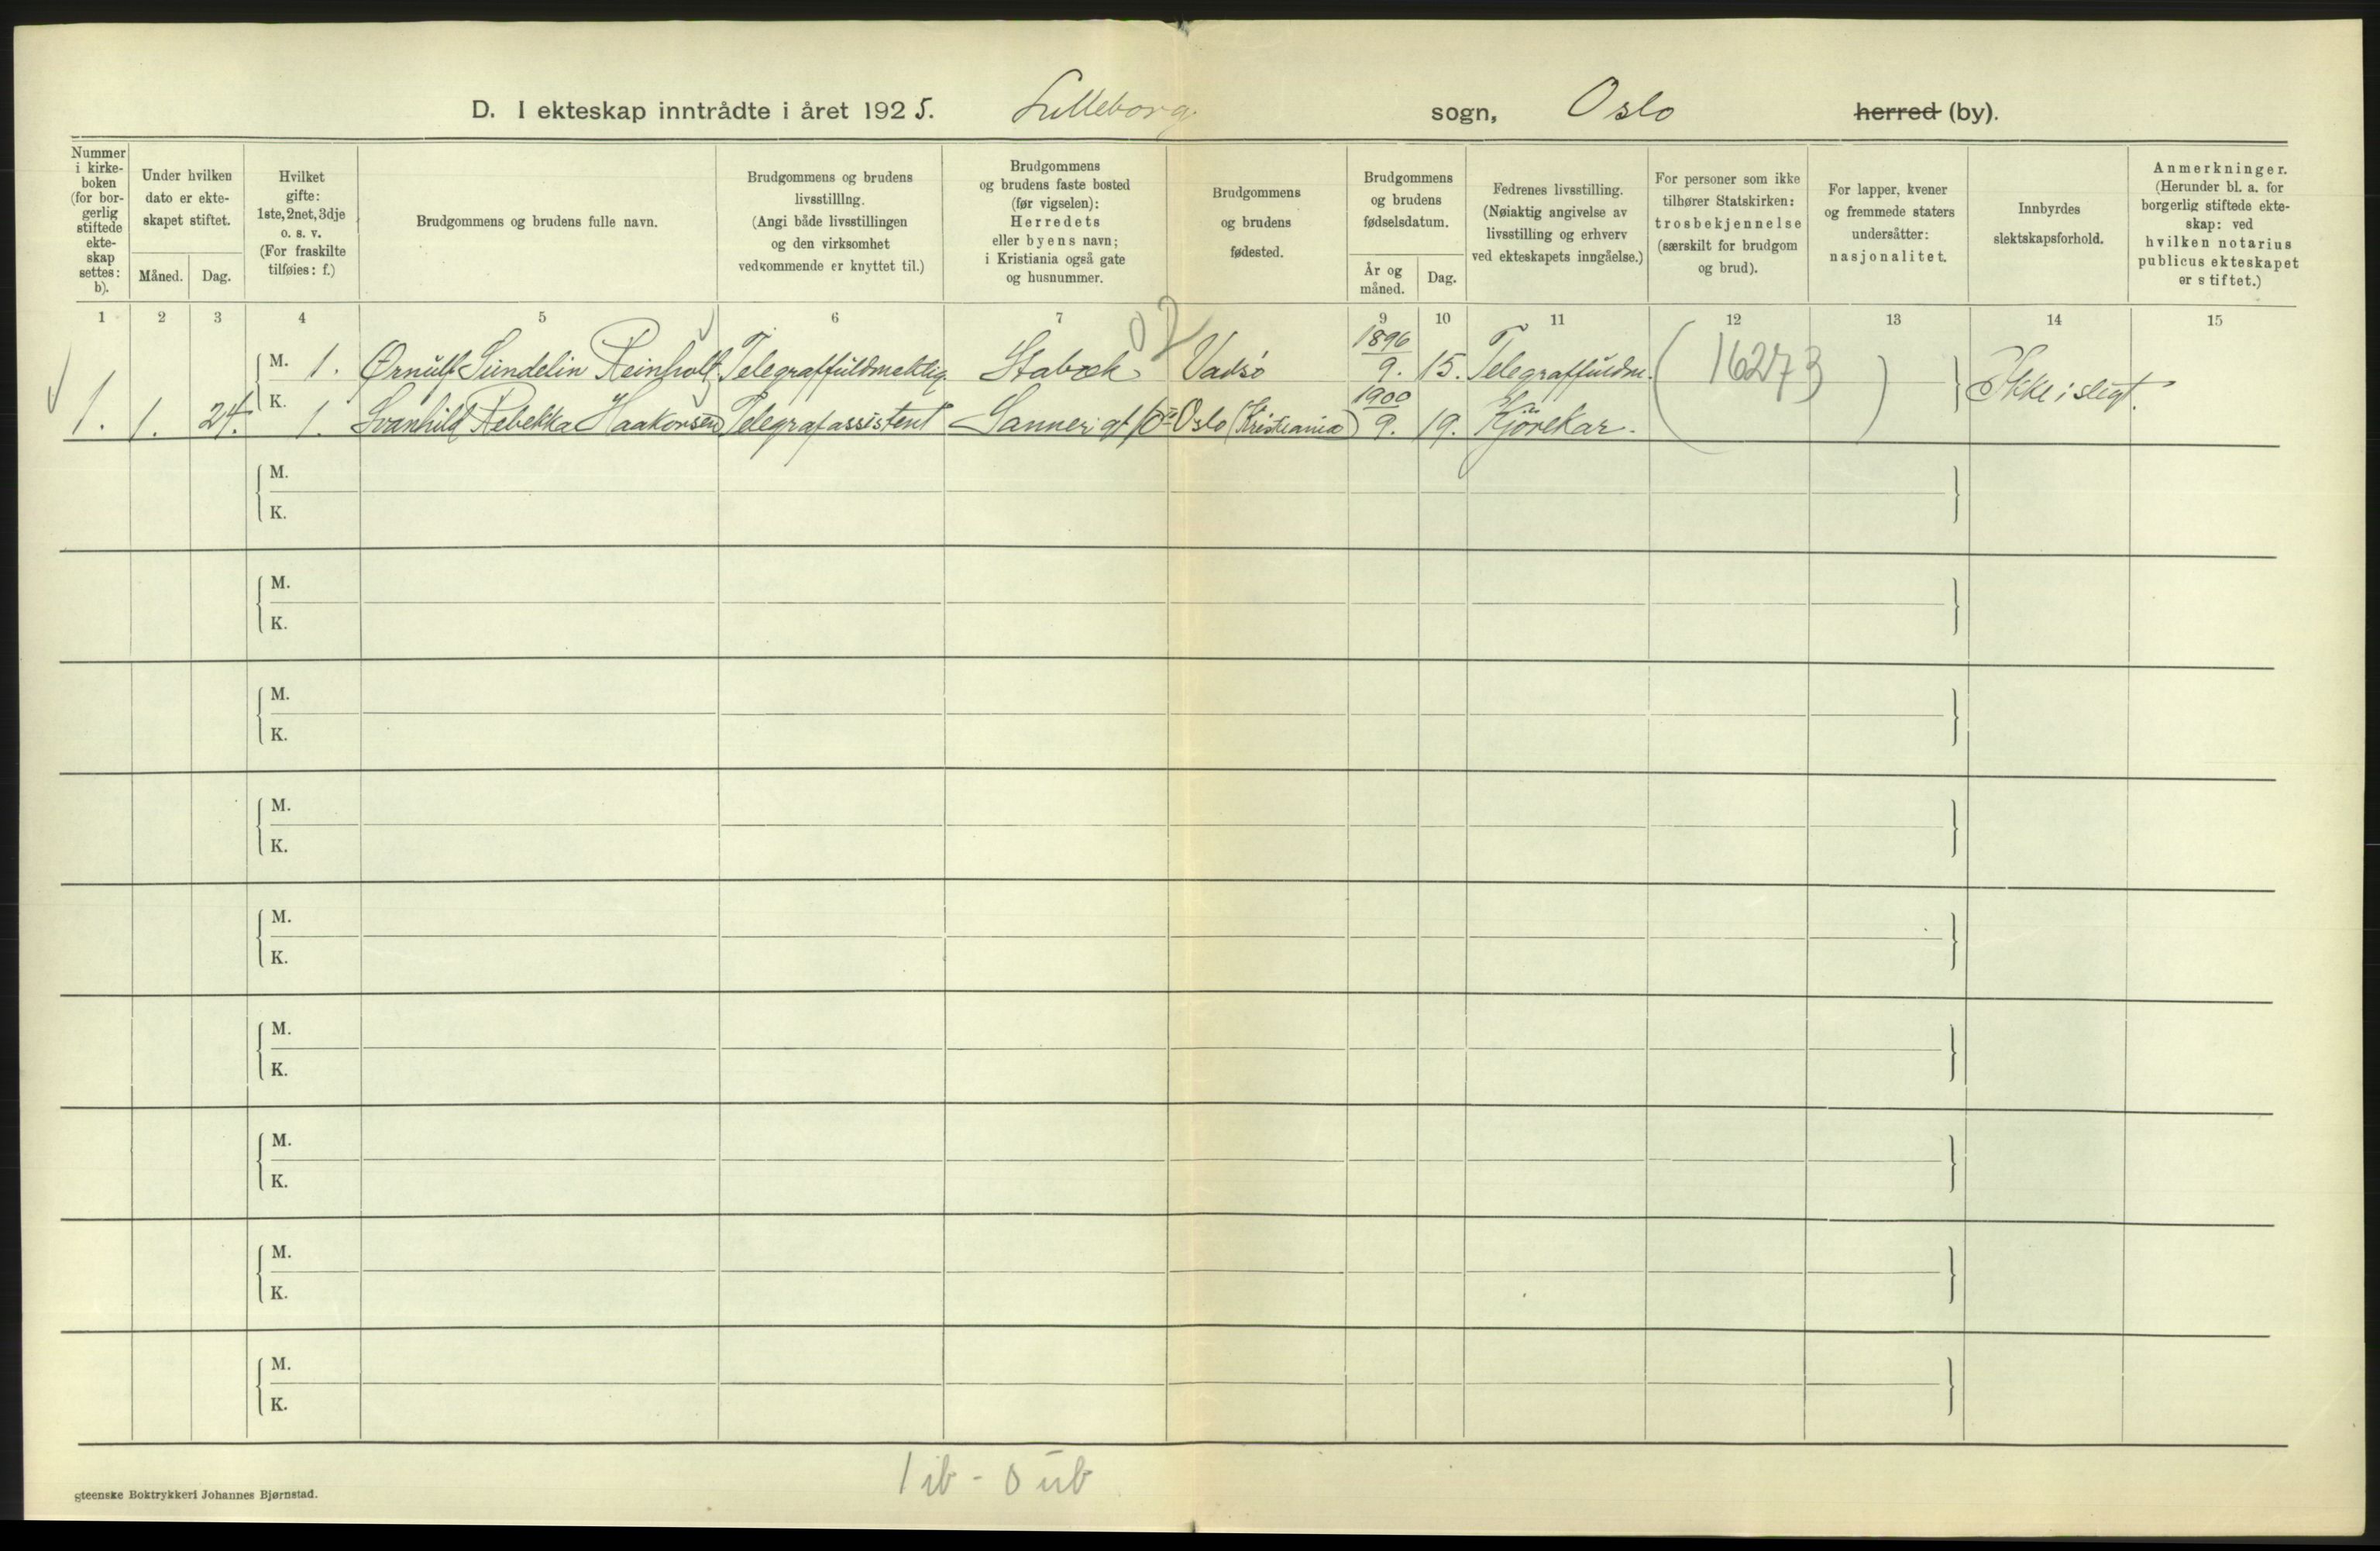 D. I ekteskap inntrådte i året 1925. Lilleborg sogn, Oslo herred (by).
Nummer i kirke-boken (for bor-gerlig stiftede ekte-skap settes: b).
Under hvilken dato er ekte-skapet stiftet.
Måned.
Dag.
Hvilket gifte: 1ste, 2net, 3dje o. s. v. (For fraskilte tilføies: f.)
Brudgommens og brudens fulle navn.
Brudgommens og brudens livsstilllng. (Angi både livsstillingen og den virksomhet vedkommende er knyttet til.)
Brudgommens og brudens faste bosted (før vigselen): Herredets eller byens navn; i Kristiania også gate og husnummer.
Brudgommens og brudens fødested.
Brudgommens og brudens fødselsdatum.
År og måned.
Dag.
Fedrenes livsstilling. (Nøiaktig angivelse av livsstilling og erhverv ved ekteskapets inngåelse.)
For personer som ikke tilhører Statskirken: trosbekjennelse (særskilt for brudgom og brud).
For lapper, kvener og fremmede staters undersåtter: nasjonalitet.
Innbyrdes slektskapsforhold.
Anmerkninger. (Herunder bl. a. for borgerlig stiftede ekte-skap: ved hvilken notarius publicus ekteskapet er stiftet.)
1 2 3 4 5 6 7 9 10 11 12 13 14 15
M. 1. Ørnulf Sundelin Reinholt. Telegraffuldmektig. Stabæk. Vadsø 1896 9. 15. Telegraffuldm. (16273) Ikke i slegt.
1. 1. 24. K. 1. Svanhild Rebekka Haakonsen Telegrafassistent Sanner gt 10 Oslo (Kristiania) 1900 9. 19. Kjørekar.
M.
K.
M.
K.
M.
K.
M.
K.
M.
K.
M.
K.
M.
K.
M.
K.
M.
K.
1 ib - 0 ub
gteenske Boktrykkeri Johannes Bjørnstad.